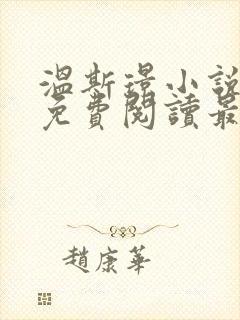 溫斯璟小說
免費閱讀最
趙康華